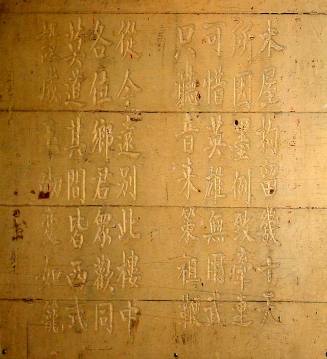 木屋拘留幾十天
所囚墨例致牽連
可惜英雄無用武
只聽音來策祖鞭
從今遠別此樓中
各位鄉君眾歡同
莫道其間皆西式
設成玉砌變如籠